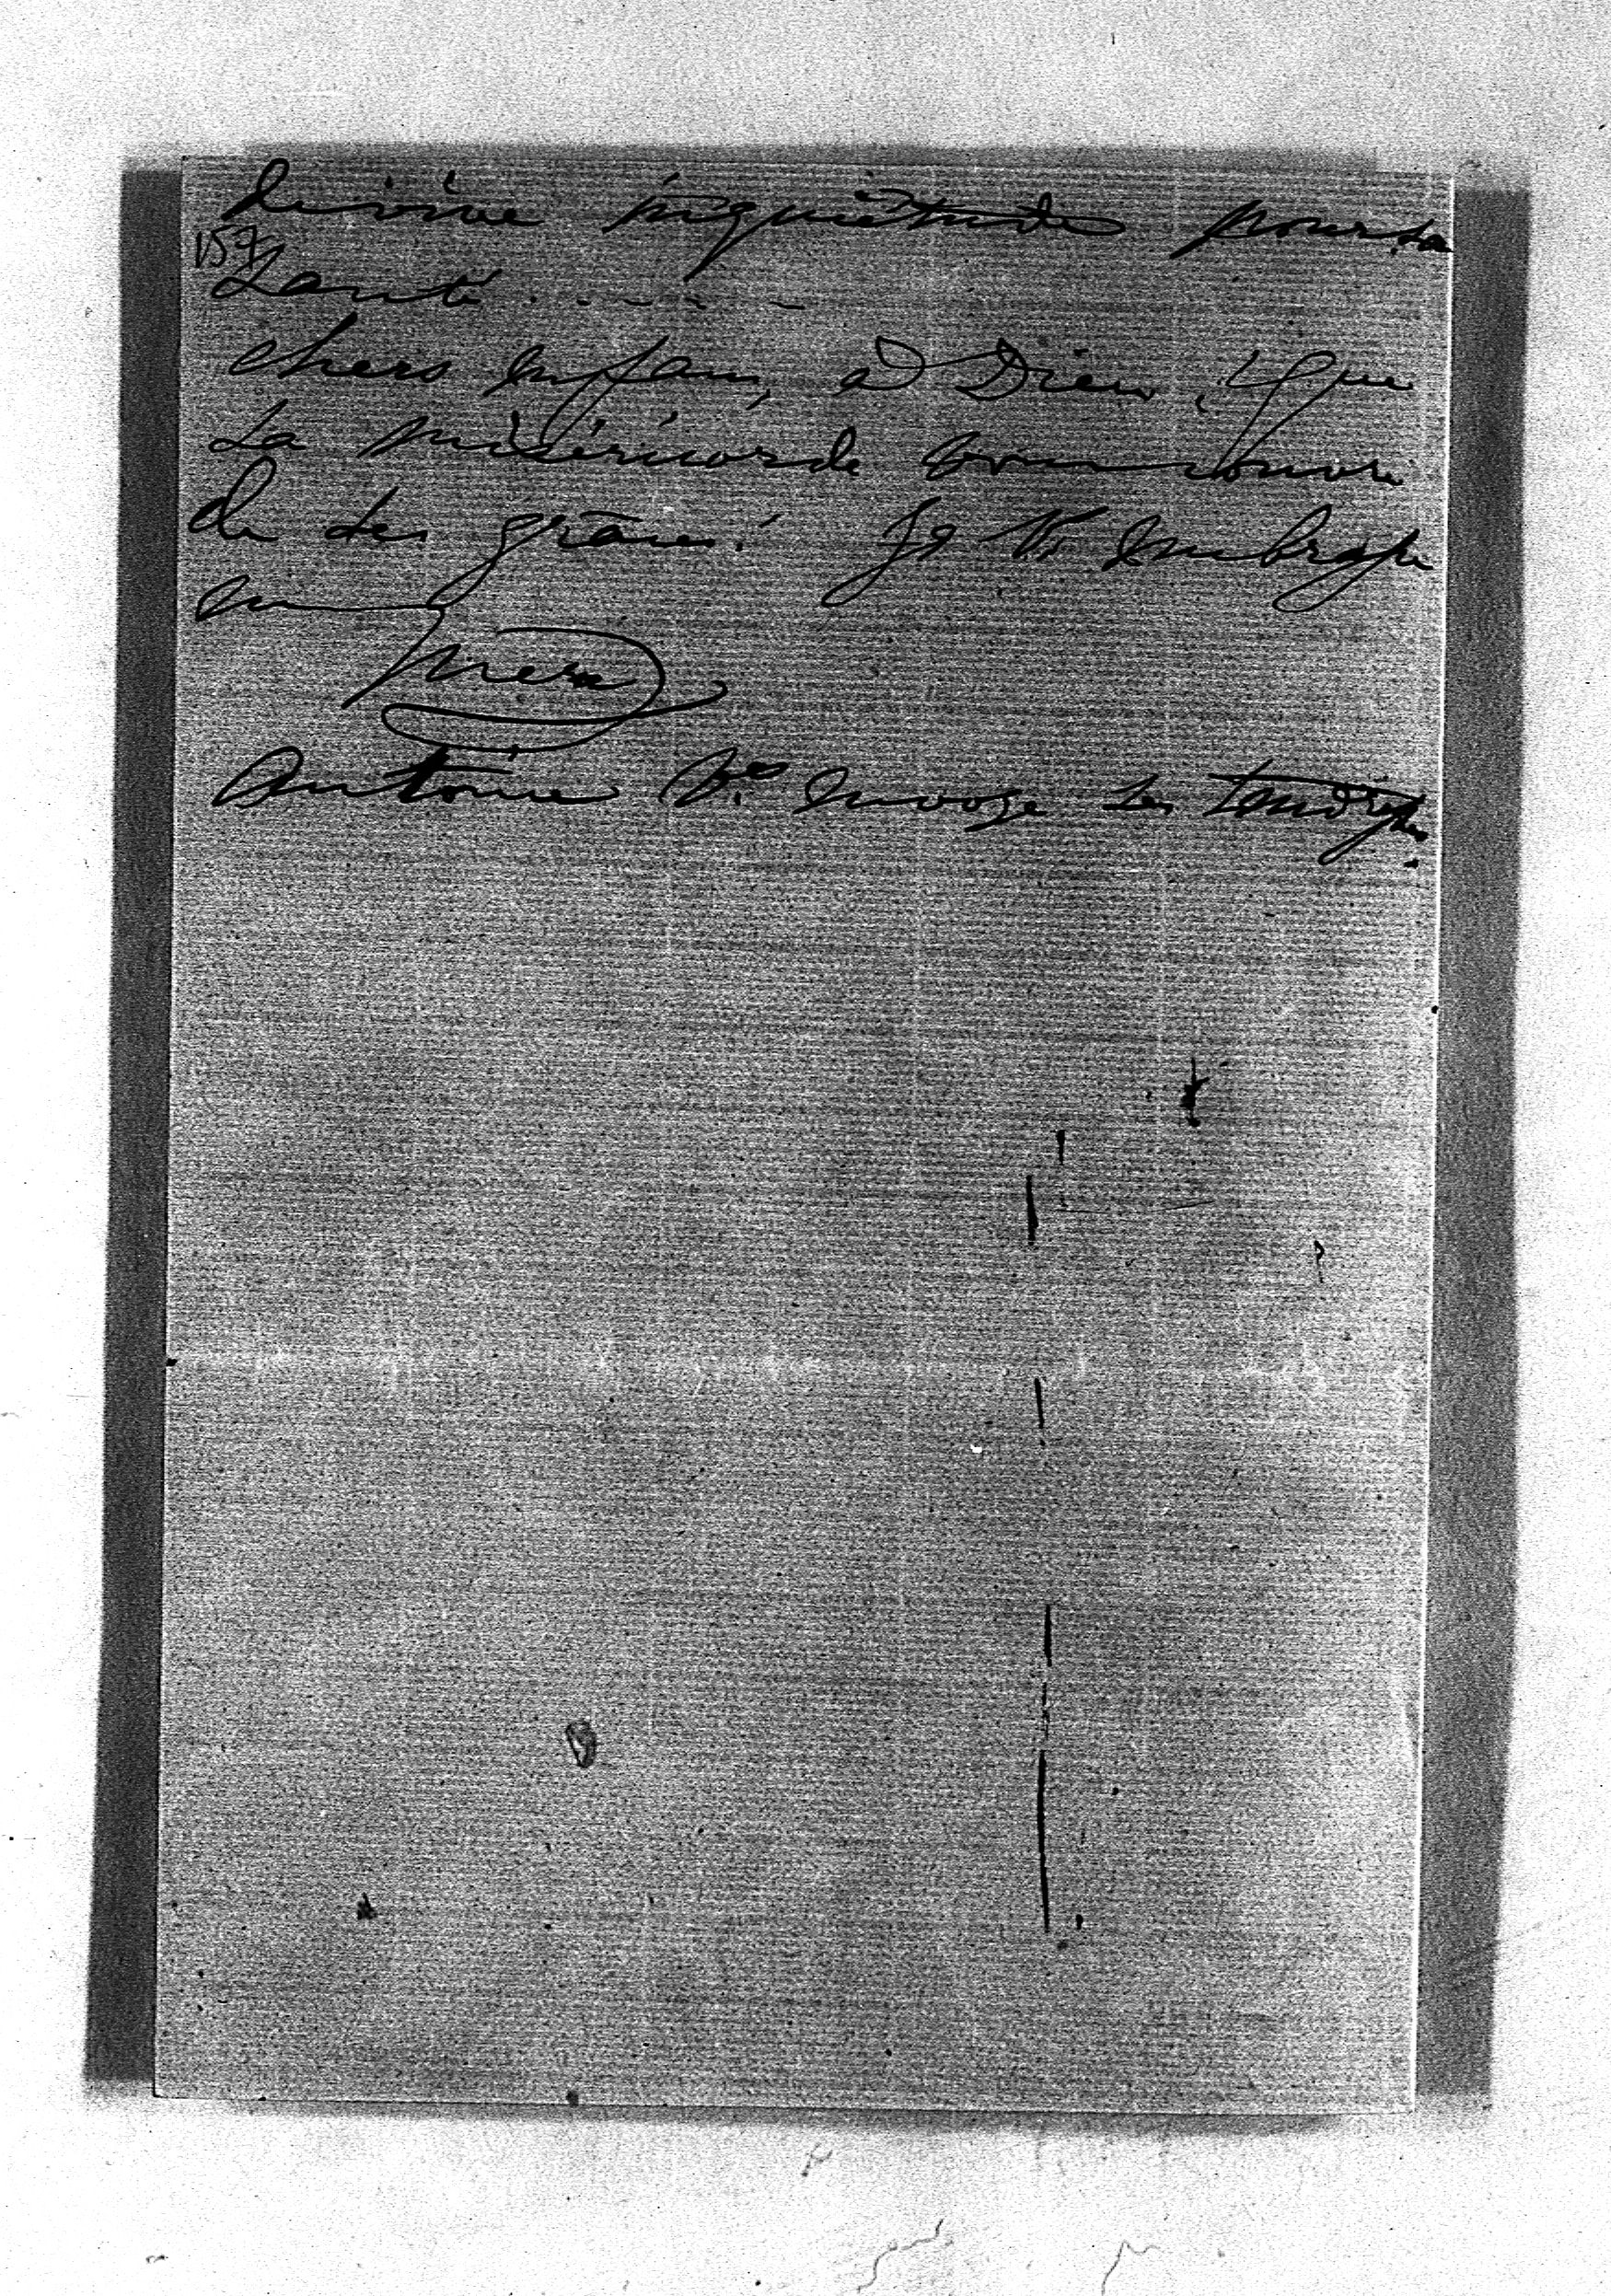 de vive inquiétude pour sa
157
santé . . - - - -
chers enfans, à Dieu, que
sa miséricorde vous couvre
de ses grâces! Je Vs embrasse
en
mère
Antoine Vs envoye ses tendresses.